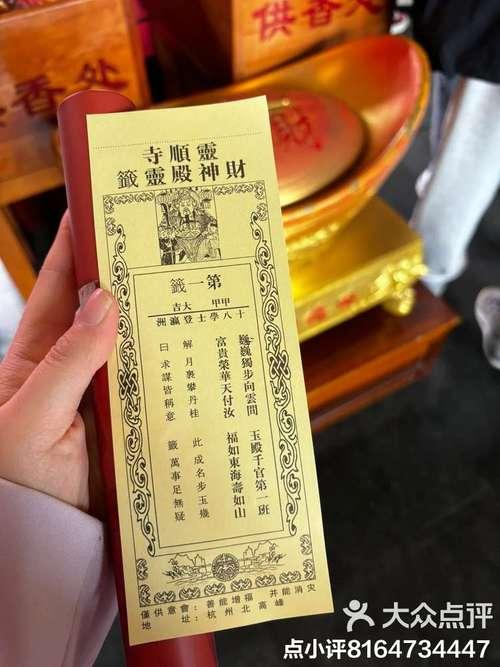 供香处
供香处
財
靈順寺
財神殿靈籤
第一籤
甲甲 大吉
十八學士登瀛洲
巍巍獨步向雲間 玉殿千官第一班
富貴榮華天付汝 福如東海壽如山
解月裏攀丹桂 此成名步玉幾
曰求謀皆稱意 籤萬事足無疑
僅供意會：善能增福 并能消灾
地 址：杭州北高峰
大众点评
点小评8164734447